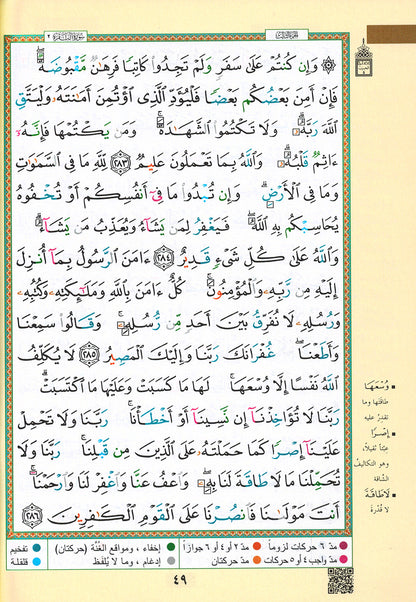 سورة البقرة ٢
الجزء الثالث
۞ وَإِن كُنتُمْ عَلَىٰ سَفَرٍ وَلَمْ تَجِدُوا۟ كَاتِبًا فَرِهَـٰنٌ مَّقْبُوضَةٌ ۖ
فَإِنْ أَمِنَ بَعْضُكُم بَعْضًا فَلْيُؤَدِّ ٱلَّذِى ٱؤْتُمِنَ أَمَـٰنَتَهُۥ وَلْيَتَّقِ
ٱللَّهَ رَبَّهُۥ ۗ وَلَا تَكْتُمُوا۟ ٱلشَّهَـٰدَةَ ۚ وَمَن يَكْتُمْهَا فَإِنَّهُۥٓ
ءَاثِمٌ قَلْبُهُۥ ۗ وَٱللَّهُ بِمَا تَعْمَلُونَ عَلِيمٌ ٢٨٣ لِّلَّهِ مَا فِى ٱلسَّمَـٰوَٰتِ
وَمَا فِى ٱلْأَرْضِ ۗ وَإِن تُبْدُوا۟ مَا فِىٓ أَنفُسِكُمْ أَوْ تُخْفُوهُ
يُحَاسِبْكُم بِهِ ٱللَّهُ ۖ فَيَغْفِرُ لِمَن يَشَآءُ وَيُعَذِّبُ مَن يَشَآءُ ۗ
وَٱللَّهُ عَلَىٰ كُلِّ شَىْءٍ قَدِيرٌ ٢٨٤ ءَامَنَ ٱلرَّسُولُ بِمَآ أُنزِلَ
إِلَيْهِ مِن رَّبِّهِۦ وَٱلْمُؤْمِنُونَ ۚ كُلٌّ ءَامَنَ بِٱللَّهِ وَمَلَـٰٓئِكَتِهِۦ وَكُتُبِهِۦ
وَرُسُلِهِۦ لَا نُفَرِّقُ بَيْنَ أَحَدٍ مِّن رُّسُلِهِۦ ۚ وَقَالُوا۟ سَمِعْنَا
وَأَطَعْنَا ۖ غُفْرَانَكَ رَبَّنَا وَإِلَيْكَ ٱلْمَصِيرُ ٢٨٥ لَا يُكَلِّفُ
ٱللَّهُ نَفْسًا إِلَّا وُسْعَهَا ۚ لَهَا مَا كَسَبَتْ وَعَلَيْهَا مَا ٱكْتَسَبَتْ ۗ
رَبَّنَا لَا تُؤَاخِذْنَآ إِن نَّسِينَآ أَوْ أَخْطَأْنَا ۚ رَبَّنَا وَلَا تَحْمِلْ
عَلَيْنَآ إِصْرًا كَمَا حَمَلْتَهُۥ عَلَى ٱلَّذِينَ مِن قَبْلِنَا ۚ رَبَّنَا وَلَا
تُحَمِّلْنَا مَا لَا طَاقَةَ لَنَا بِهِۦ ۖ وَٱعْفُ عَنَّا وَٱغْفِرْ لَنَا وَٱرْحَمْنَآ ۚ
أَنتَ مَوْلَىٰنَا فَٱنصُرْنَا عَلَى ٱلْقَوْمِ ٱلْكَـٰفِرِينَ ٢٨٦
وُسْعَهَا
طاقتها وما
تقدرُ عليه
إِصْرًا
عِبئاً ثقيلاً،
وهو التكاليفُ
الشاقة
لَا طَاقَةَ
لا قُدرةَ
مدّ ٦ حركات لزوماً
مدّ ٢ أو ٤ أو ٦ جوازاً
إخفاء، ومواقع الغُنَّة (حركتان)
تفخيم
مدّ واجب ٤ أو ٥ حركات
مدّ حركتان
إدغام، وما لا يُلفَظ
قلقلة
٤٩